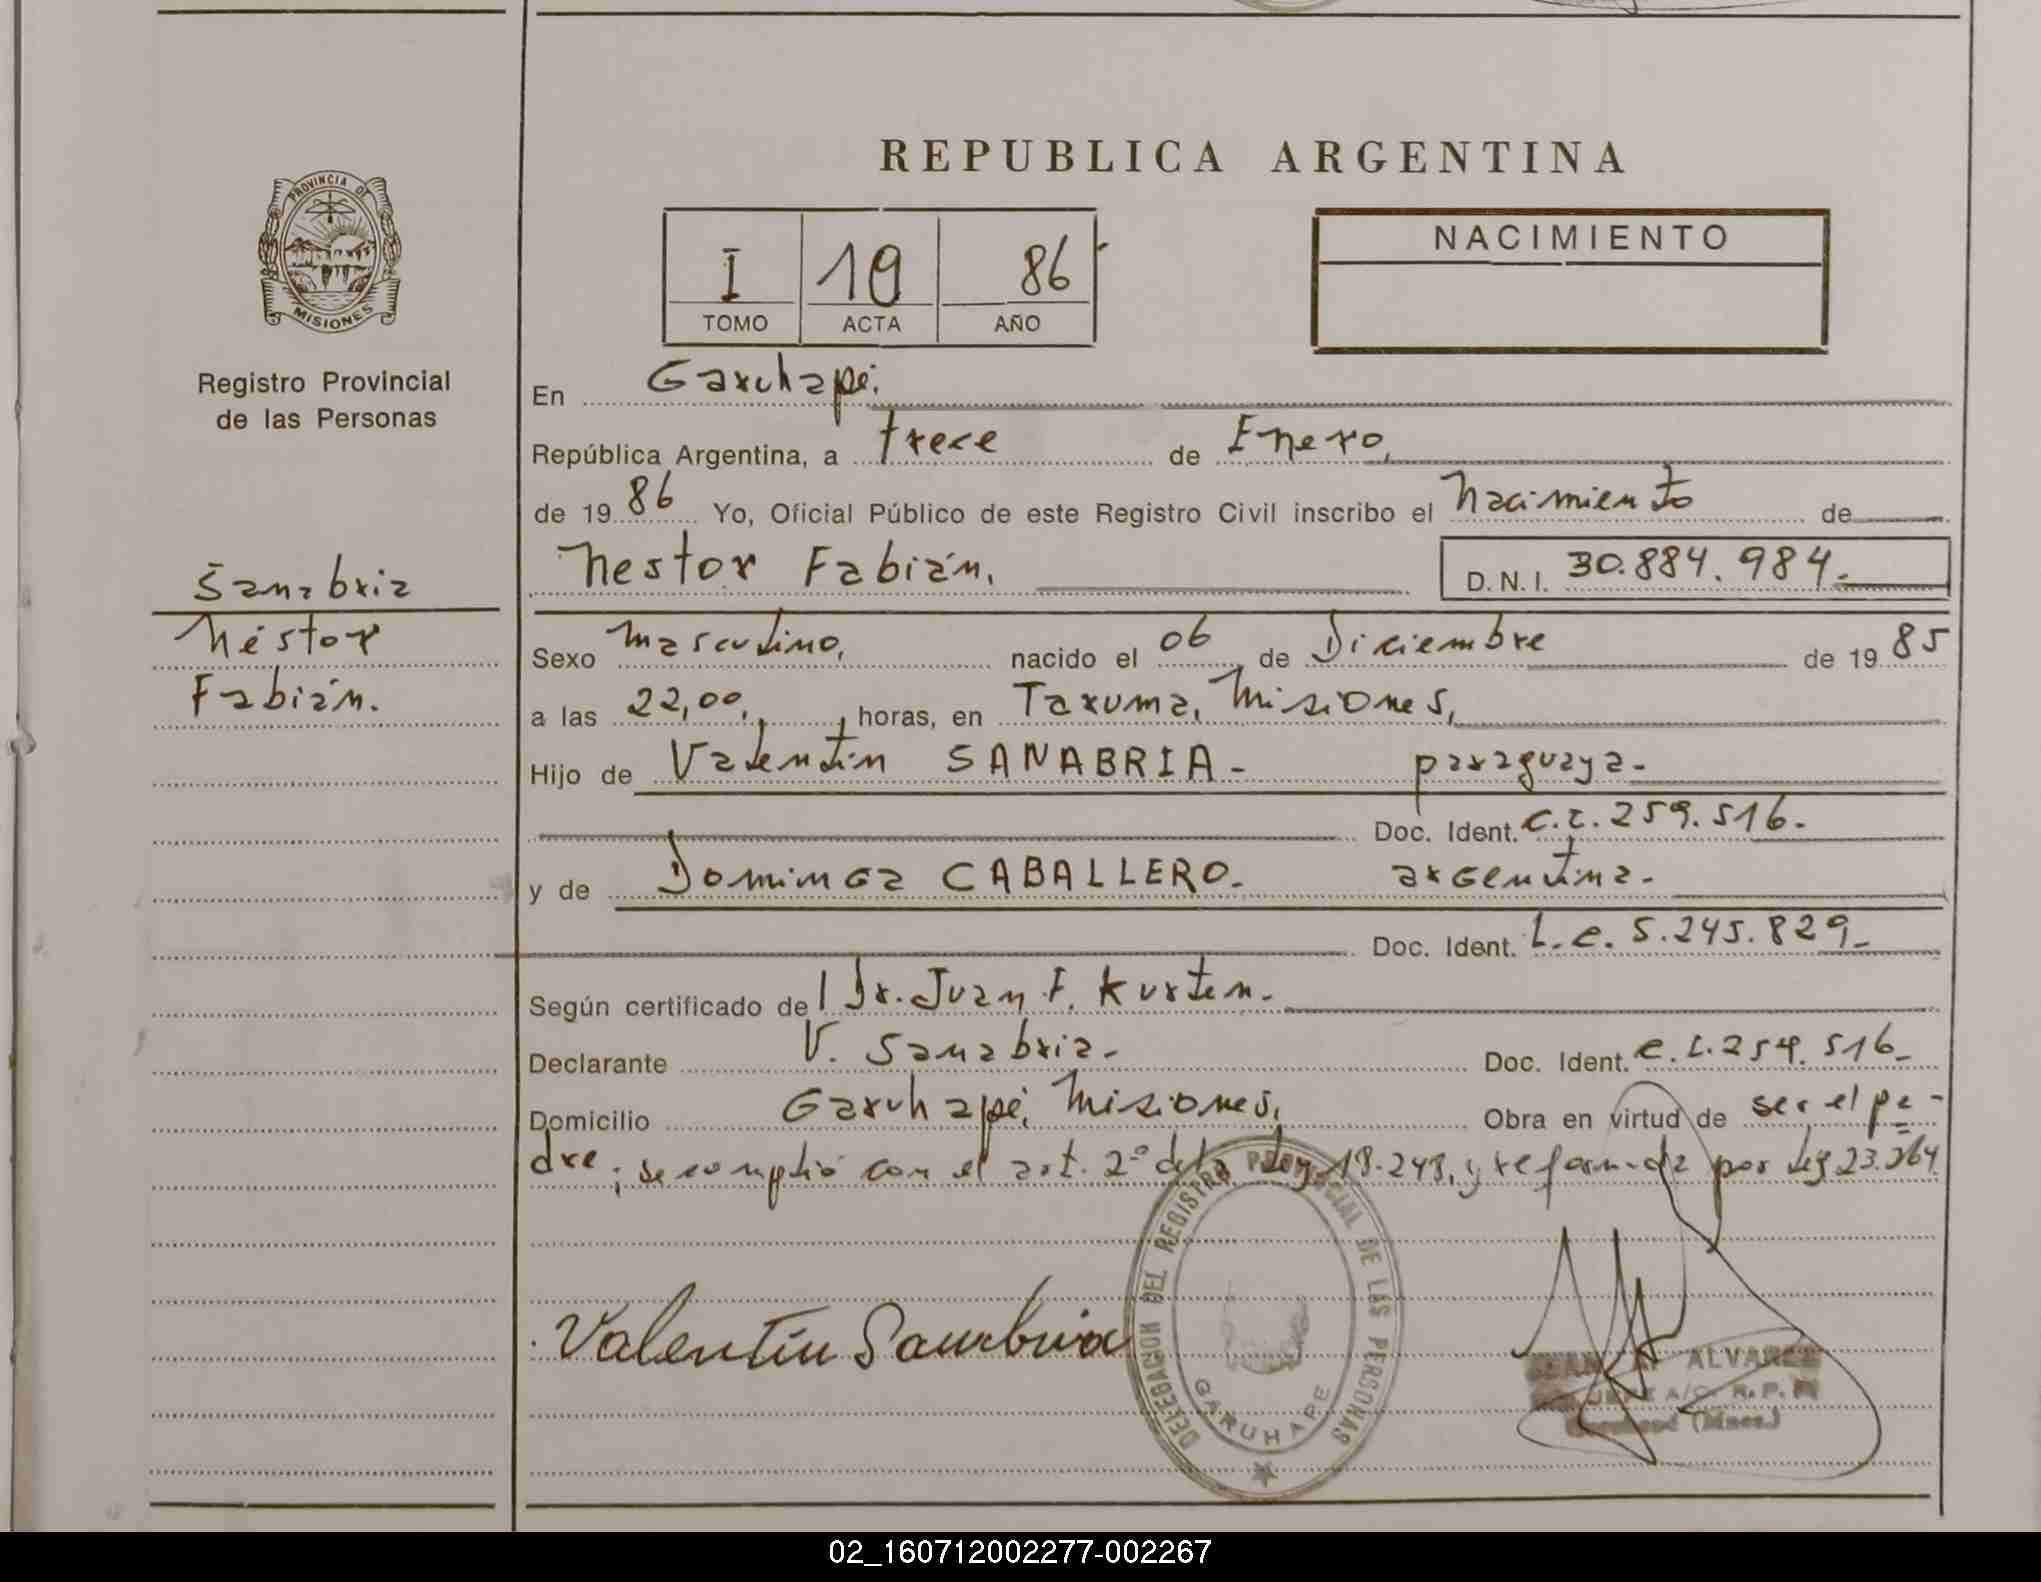 REPUBLICA ARGENTINA
PROVINCIA DE
MISIONES
Registro Provincial
de las Personas
I 19 86
TOMO ACTA AÑO
NACIMIENTO
En Garuhapé.
República Argentina, a trece de Enero,
de 19 86 Yo, Oficial Público de este Registro Civil inscribo el Nacimiento de
Nestor Fabián. D.N.I. 30.884.984.-
Sanabria
Néstor
Fabián.
Sexo Masculino, nacido el 06 de Diciembre de 19 85
a las 22,00, horas, en Taruma, Misiones,
Hijo de Valentin SANABRIA - paraguaya -
Doc. Ident. C.I. 259.516.
y de Dominga CABALLERO. argentina.-
Doc. Ident. L.C. 5.245.829-
Según certificado de Dr. Juan F. Kursten.
Declarante V. Sanabria.- Doc. Ident. C.I. 259.516-
Domicilio Garuhapé, Misiones, Obra en virtud de ser el pa-
dre; se cumplió con el art. 2º de la Ley 18.248, y reformada por Ley 23.264
Valentín Sanabria
DELEGACION DEL REGISTRO PROVINCIAL DE LAS PERSONAS
GARUHAPE
ALVAREZ
A/C. R. P. P.
(Mnes.)
02_160712002277-002267